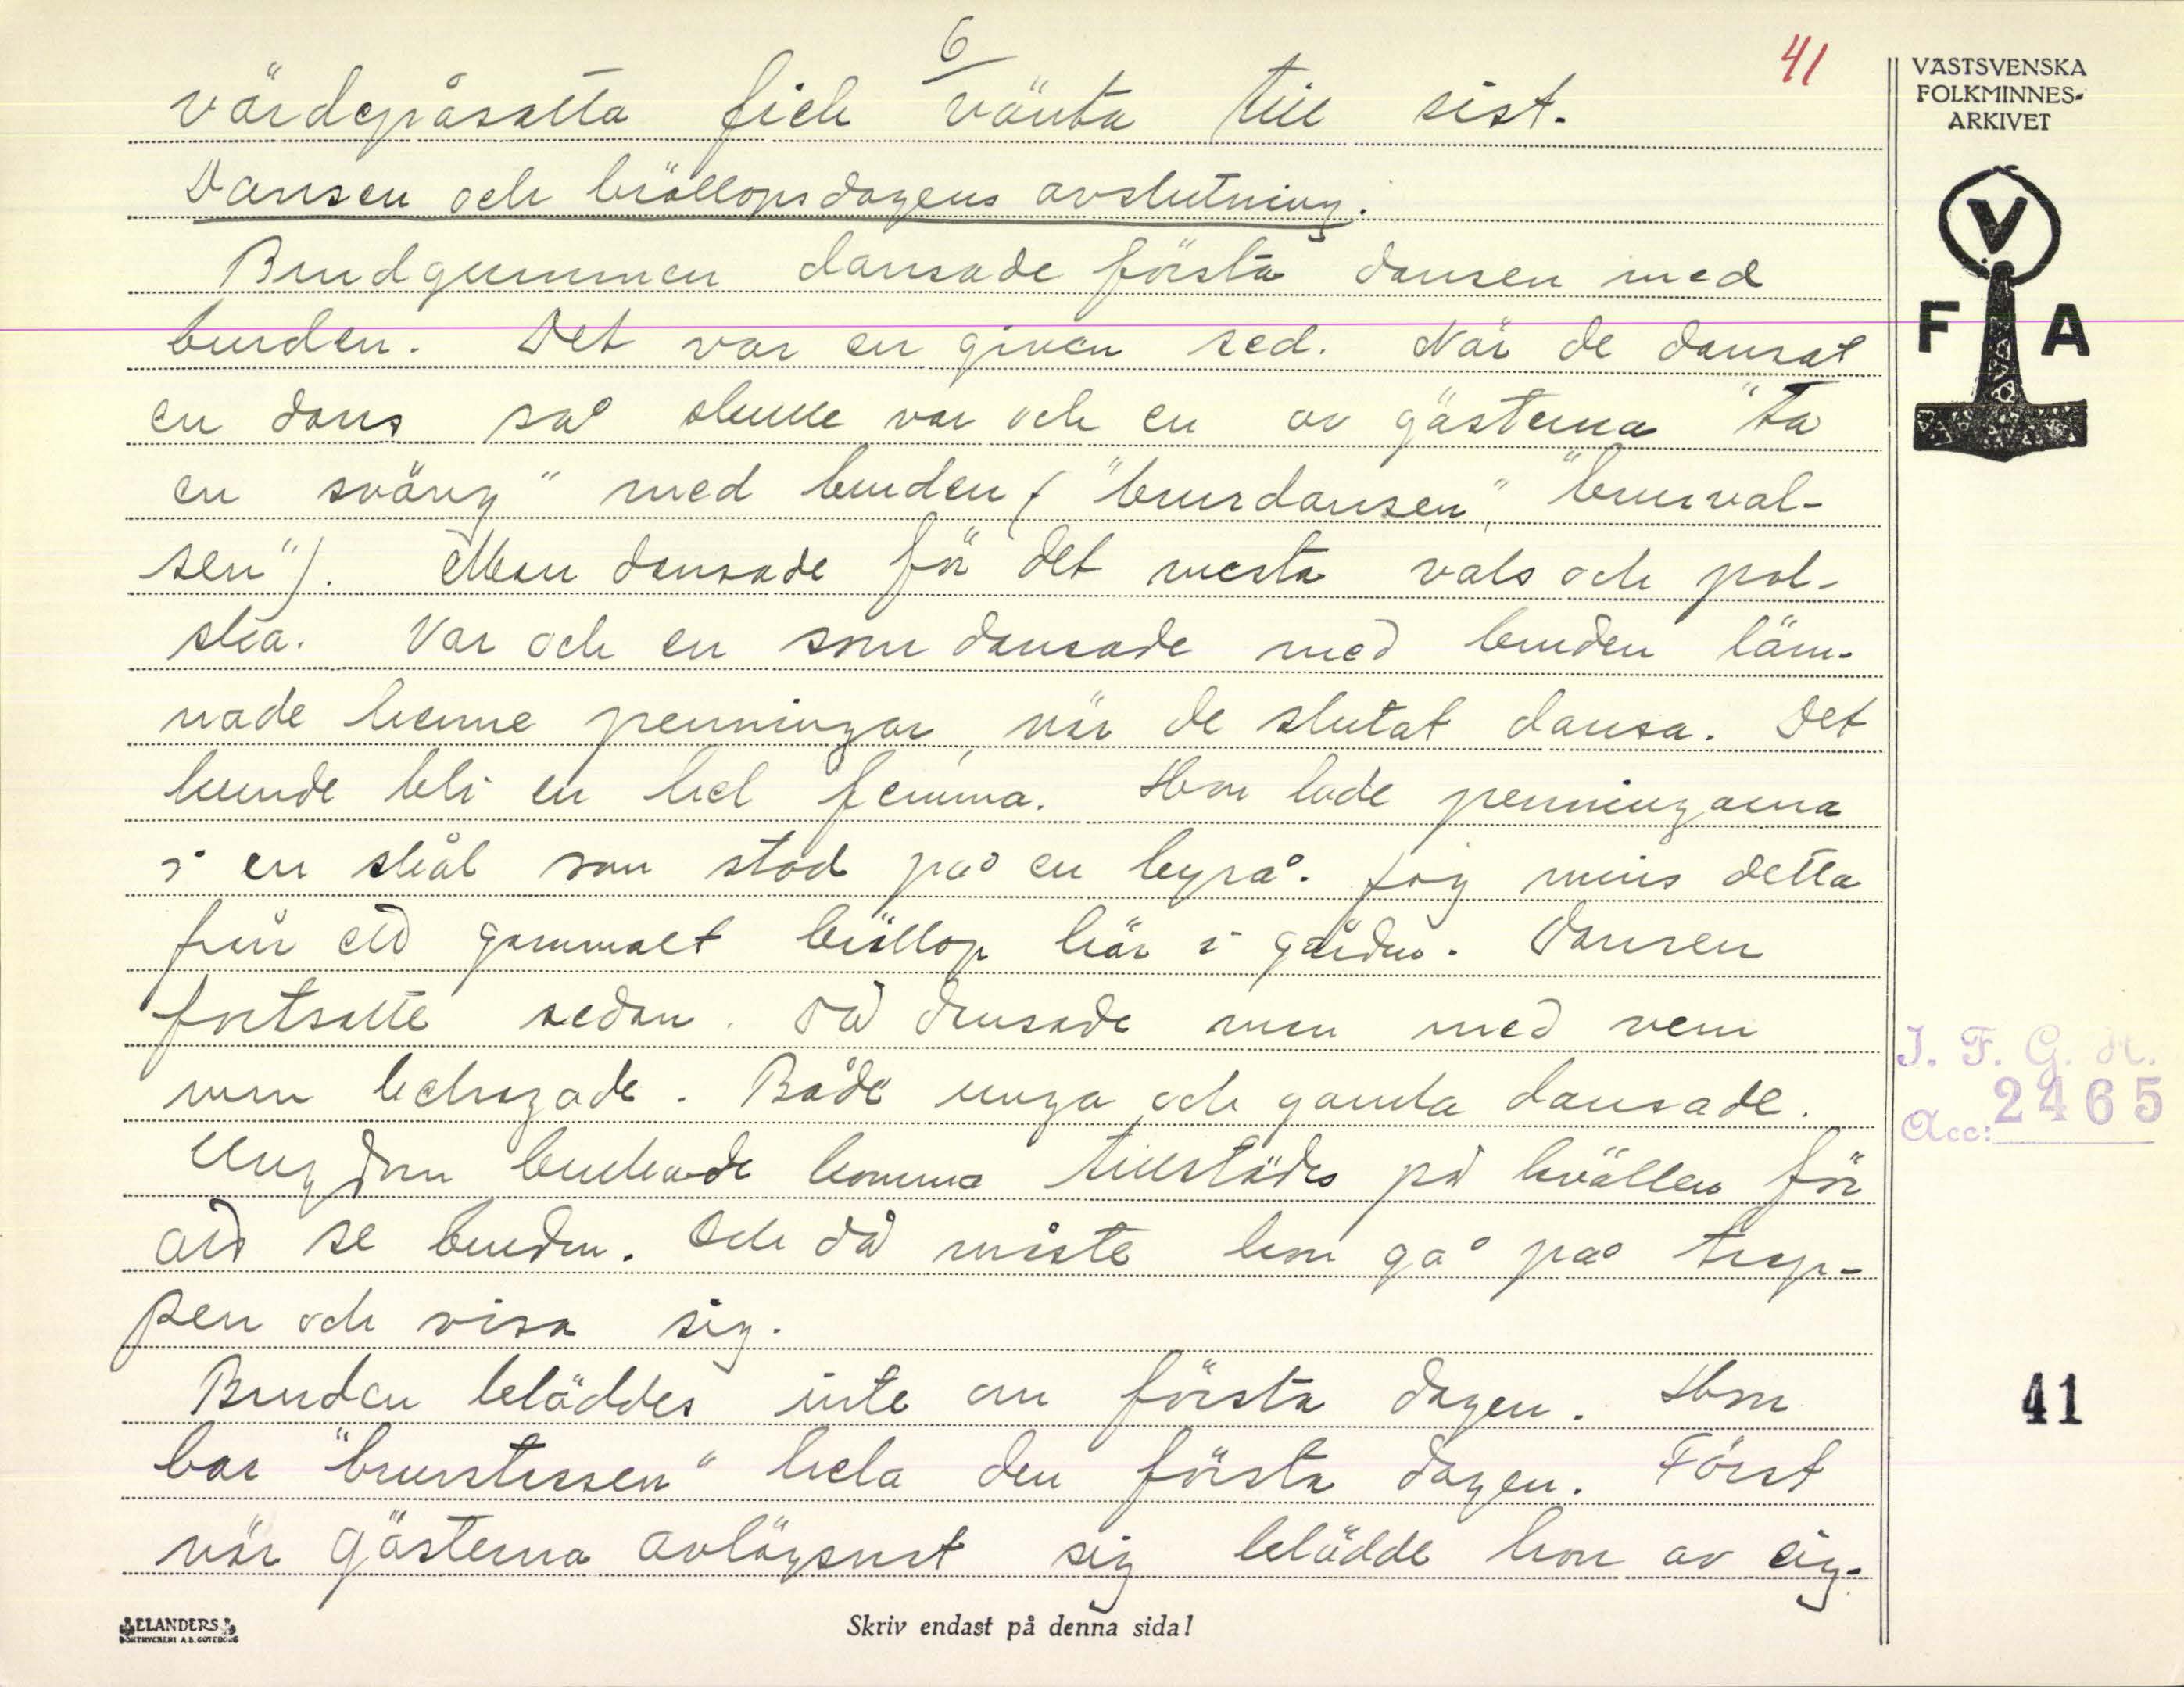 6
41
värdepåsatta fick vänta till sist.
Dansen och bröllopsdagens avslutning.
Brudgummen dansade första dansen med
bruden. Det var en given sed. När de dansat
en dans så skulle var och en av gästerna "ta
en sväng" med bruden ("brurdansen", "brurval-
sen"). Man dansade för det mesta vals och pol-
ska. Var och en som dansade med bruden läm-
nade henne penningar, när de slutat dansa. Det
kunde bli en hel femma. Hon lade penningarna
i en skål som stod på en byrå. Jag minns detta
från ett gammalt bröllop här i gården. Dansen
fortsatte sedan. Då dansade man med vem
man behagade. Både unga och gamla dansade.
Ungdom brukade komma tillstädes på kvällen för
att se bruden. Och då måste hon gå på trap-
pen och visa sig.
Bruden kläddes inte om första dagen. Hon
bar "brurstassen" hela den första dagen. Först
när gästerna avlägsnat sig klädde hon av sig.
VÄSTSVENSKA
FOLKMINNES-
ARKIVET
V
F A
I. F. G. H.
Acc: 2465
41
ELANDERS
BOKTRYCKERI A.B. GÖTEBORG
Skriv endast på denna sida!